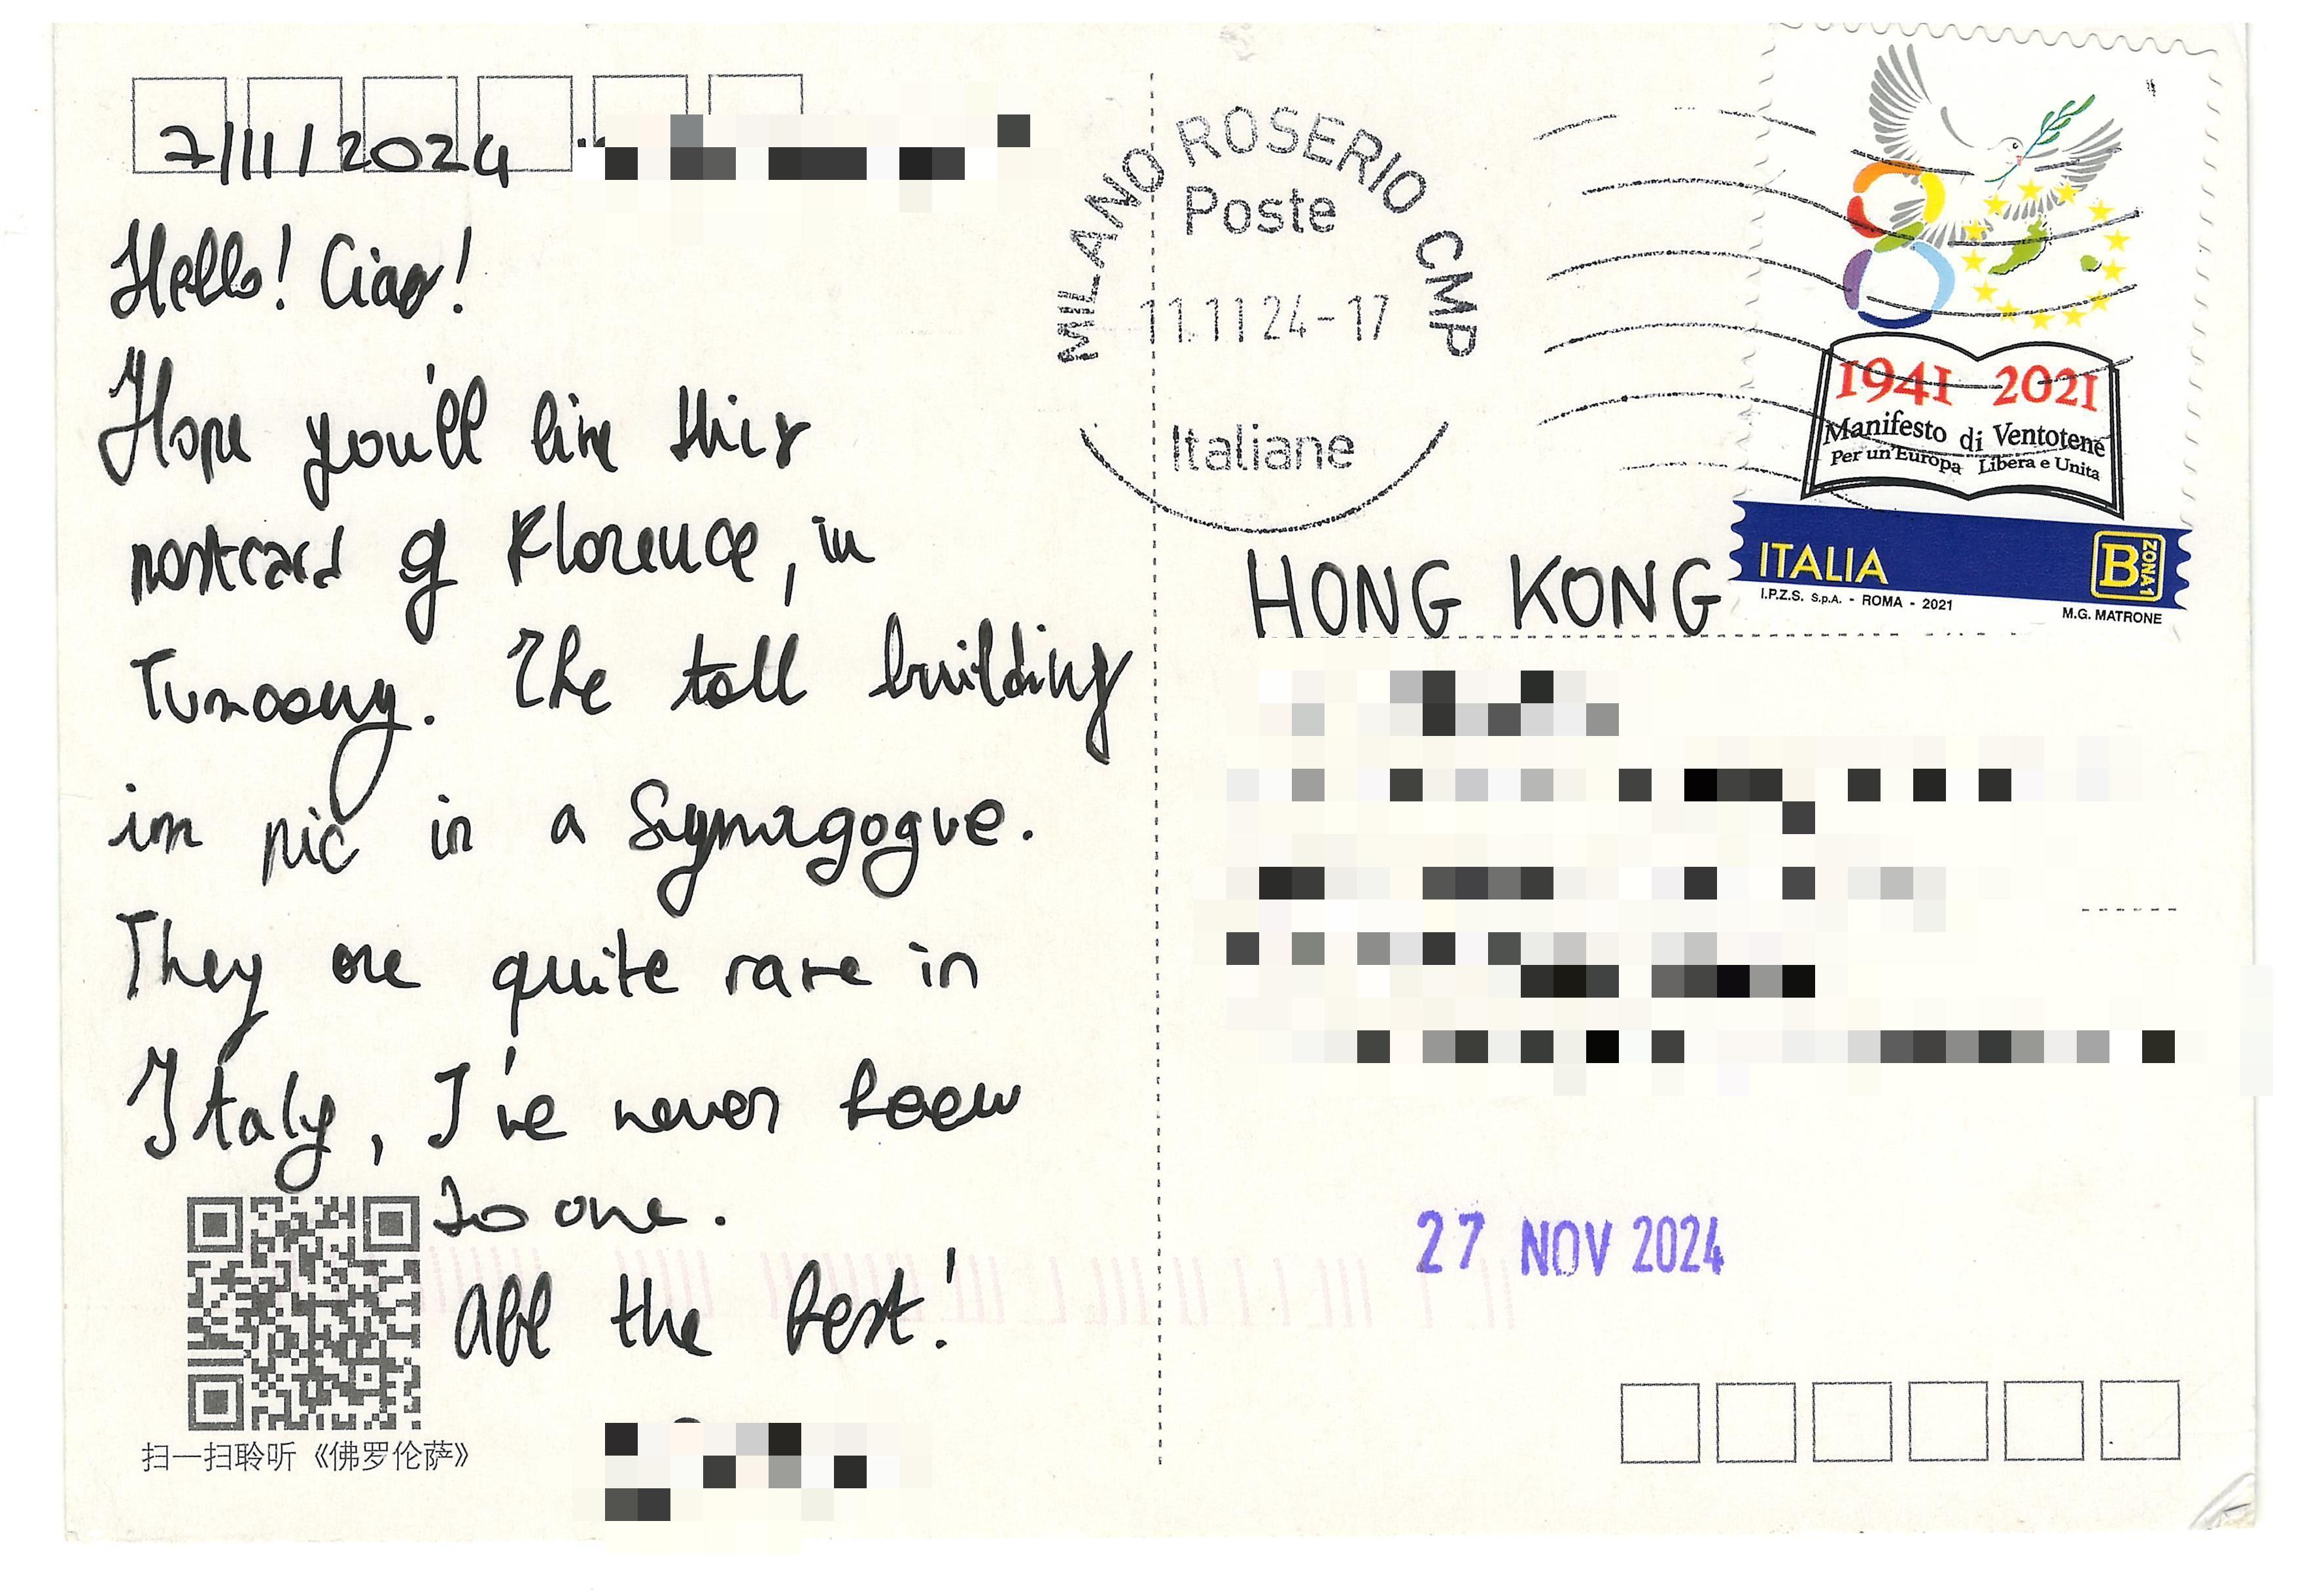 7/11/2024
Hello! Ciao!
Hope you'll like this
postcard of Florence, in
Tuscany. The tall building
in pic is a Synagogue.
They are quite rare in
Italy, I've never been
to one.
All the best!
扫一扫聆听《佛罗伦萨》
MILANO ROSERIO CMP
Poste
11.11 24-17
Italiane
80
1941 2021
Manifesto di Ventotene
Per un'Europa Libera e Unita
ITALIA
B ZONA 1
I.P.Z.S. S.p.A. - ROMA - 2021
M.G. MATRONE
HONG KONG
27 NOV 2024